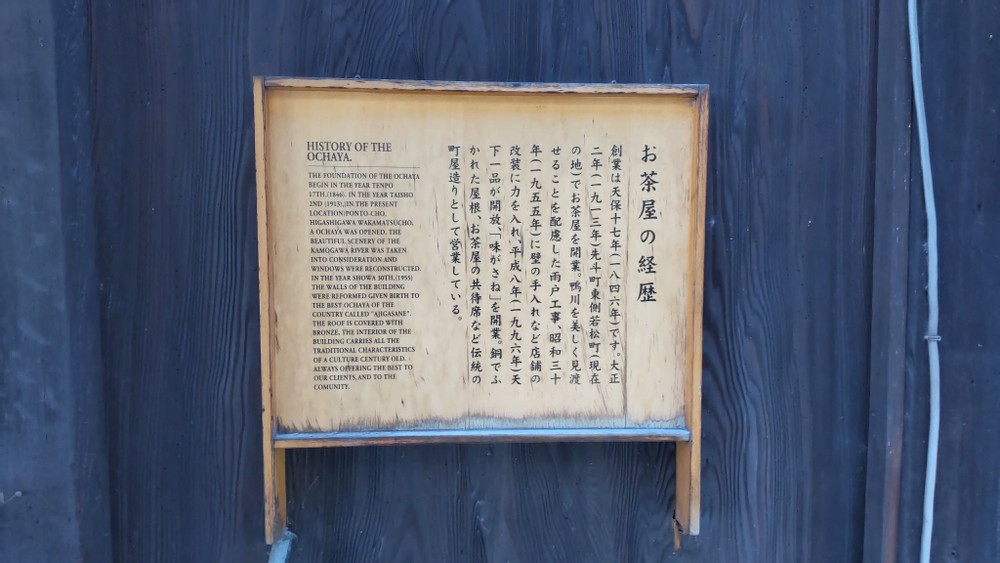 お茶屋の経歴
創業は天保十七年(一八四六年)です。大正
二年(一九一三年)先斗町東側若松町(現在
の地)でお茶屋を開業。鴨川を美しく見渡
せることを配慮した雨戸工事、昭和三十
年(一九五五年)に壁の手入れなど店舗の
改装に力を入れ、平成八年(一九九六年)天
下一品が開放、「味がさね」を開業。銅でふ
かれた屋根、お茶屋の共待席など伝統の
町屋造りとして営業している。
HISTORY OF THE
OCHAYA.
THE FOUNDATION OF THE OCHAYA
BEGIN IN THE YEAR TENPO
17TH.(1846). IN THE YEAR TAISHO
2ND (1913),IN THE PRESENT
LOCATION(PONTO-CHO,
HIGASHIGAWA WAKAMATSUCHO,
A OCHAYA WAS OPENED. THE
BEAUTIFUL SCENERY OF THE
KAMOGAWA RIVER WAS TAKEN
INTO CONSIDERATION AND
WINDOWS WERE RECONSTRUCTED.
IN THE YEAR SHOWA 30TH,(1955)
THE WALLS OF THE BUILDING
WERE REFORMED GIVEN BIRTH TO
THE BEST OCHAYA OF THE
COUNTRY CALLED "AJIGASANE".
THE ROOF IS COVERED WITH
BRONZE. THE INTERIOR OF THE
BUILDING CARRIES ALL THE
TRADITIONAL CHARACTERISTICS
OF A CULTURE CENTURY OLD.
ALWAYS OFFERING THE BEST TO
OUR CLIENTS,AND TO THE
COMUNITY.